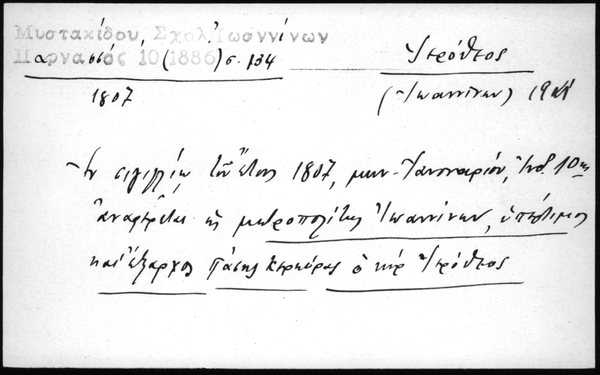 Μυστακίδου, Σχολ. Ἰωαννίνων
Παρνασσός 10 (1886) σ. 134
1807
Ἱερόθεος
(Ἰωαννίνων)
Ἐν σιγιλλίῳ τοῦ ἔτους 1807, μην. Ἰανουαρίου, Ἰνδ. 10ης
ἀναφέρεται ὡς μητροπολίτης Ἰωαννίνων, ὑπέρτιμος
καὶ ἔξαρχος πάσης Κερκύρας ὁ κύρ Ἱερόθεος